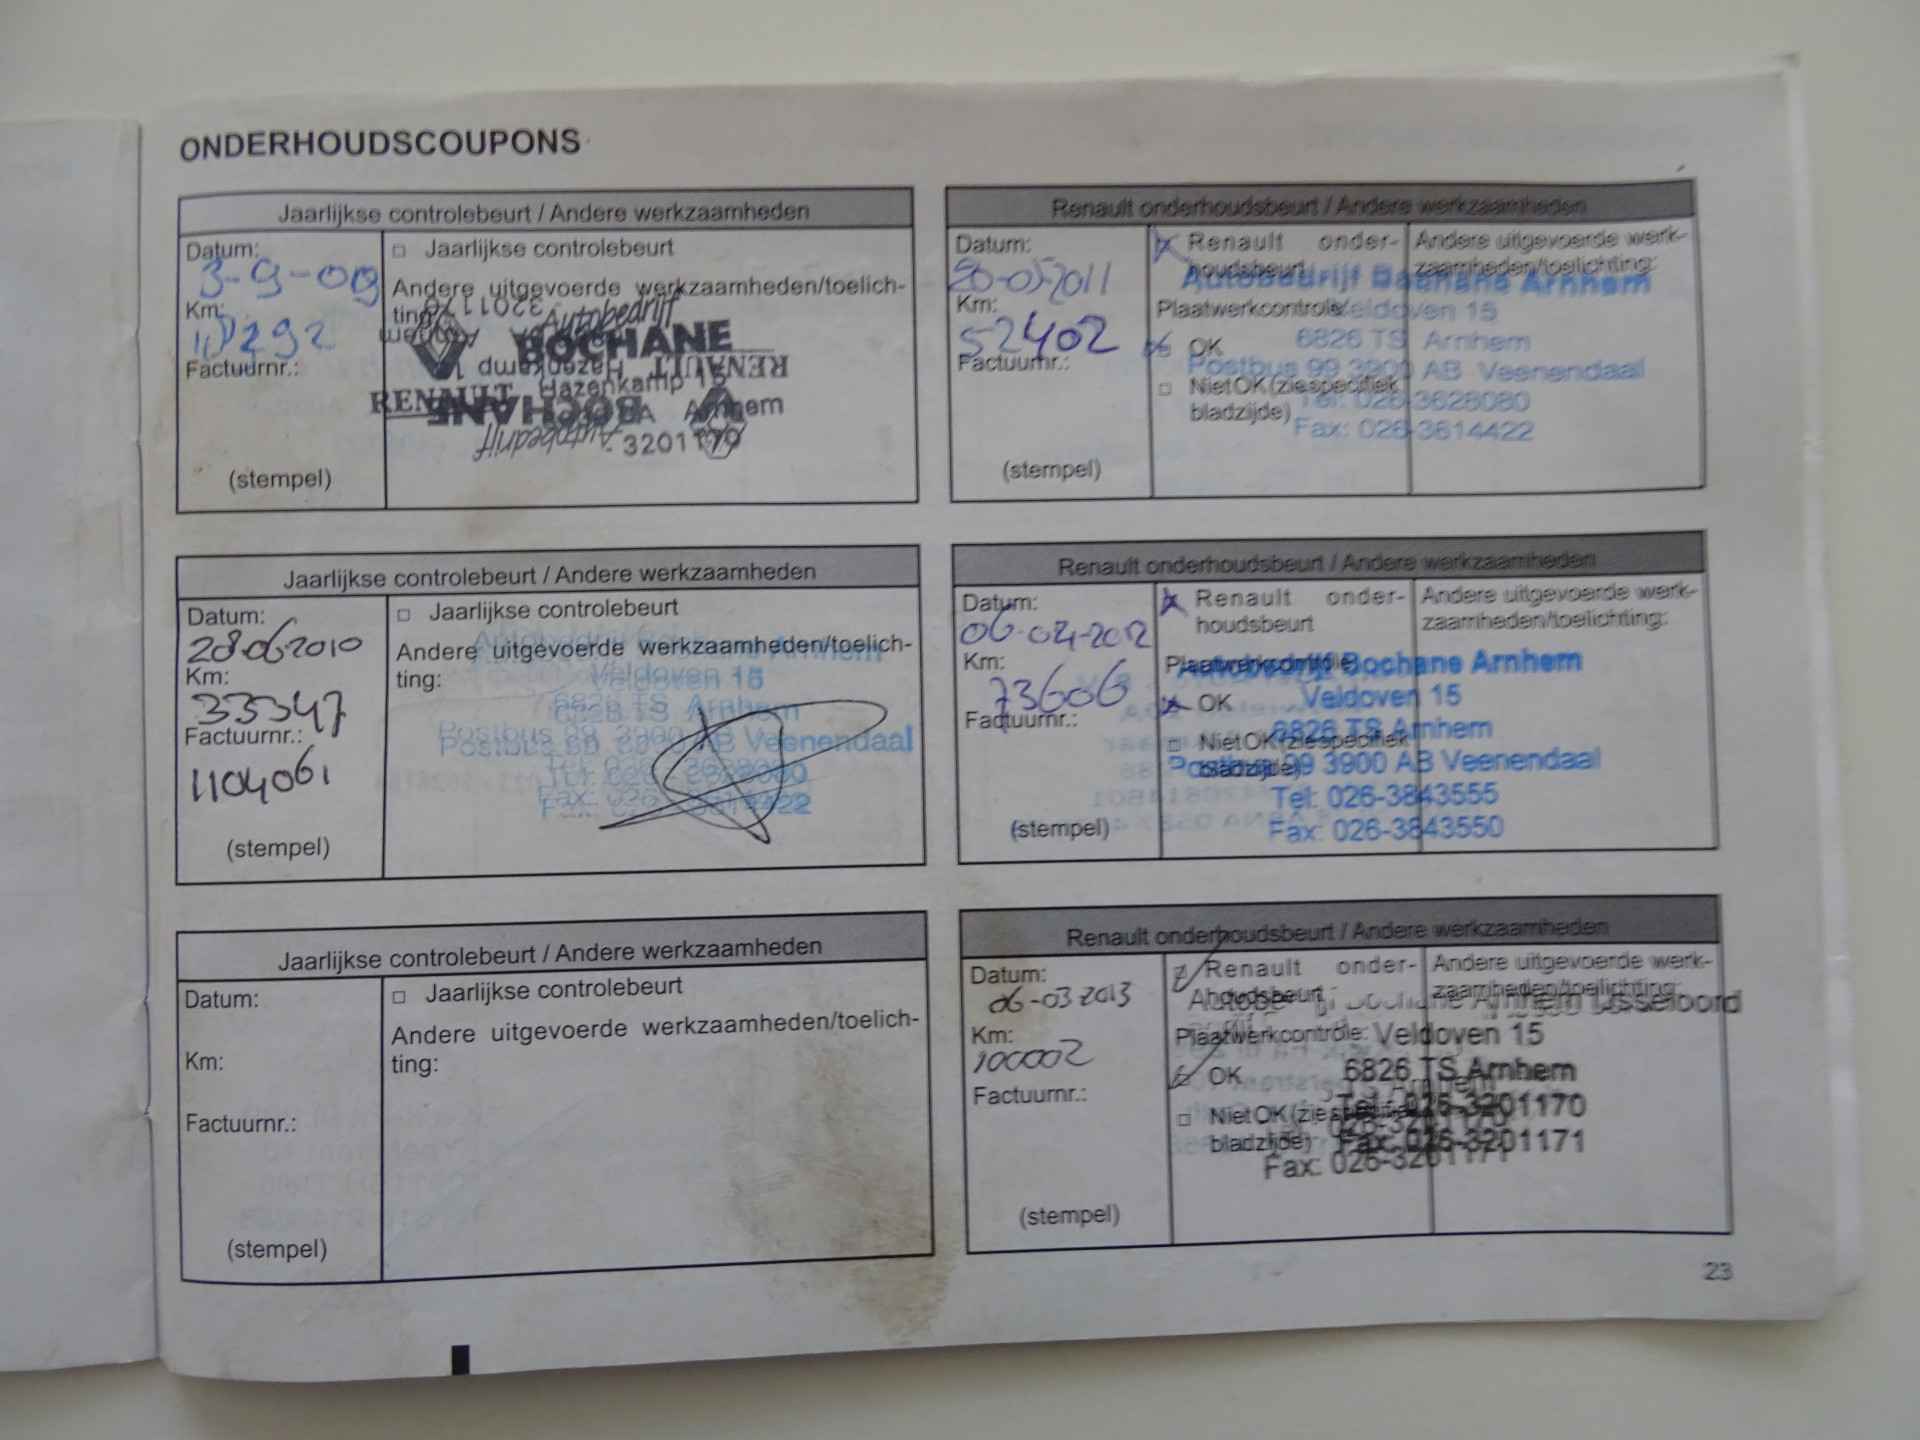 ONDERHOUDSCOUPONS
Jaarlijkse controlebeurt / Andere werkzaamheden
Datum:
3-9-09
Km:
292
Factuurnr.:
(stempel)
□ Jaarlijkse controlebeurt
Andere uitgevoerde werkzaamheden/toelich-
ting:
Autobedrijf
BOCHANE
RENAULT
Hazenkamp
RENAULT
Hazenkamp
BOCHANE
Arnhem
Autobedrijf
3201170
Renault onderhoudsbeurt / Andere werkzaamheden
Datum:
20-05-2011
Km:
52402
Factuurnr.:
(stempel)
Renault onder-
houdsbeurt
Plaatwerkcontrole:
OK
□ Niet OK (zie specifiek
bladzijde)
Andere uitgevoerde werk-
zaamheden/toelichting:
Autobedrijf Bochane Arnhem
Veldoven 15
6826 TS Arnhem
Postbus 99 3900 AB Veenendaal
Tel: 026-3628080
Fax: 026-3614422
Jaarlijkse controlebeurt / Andere werkzaamheden
Datum:
28-06-2010
Km:
33347
Factuurnr.:
1104061
(stempel)
□ Jaarlijkse controlebeurt
Andere uitgevoerde werkzaamheden/toelich-
ting:
Veldoven 15
6826 TS Arnhem
Postbus 99 3900 AB Veenendaal
Renault onderhoudsbeurt / Andere werkzaamheden
Datum:
06-04-2012
Km:
73606
Factuurnr.:
(stempel)
Renault onder-
houdsbeurt
Plaatwerkcontrole:
OK
□ Niet OK (zie specifiek
bladzijde)
Andere uitgevoerde werk-
zaamheden/toelichting:
Autobedrijf Bochane Arnhem
Veldoven 15
6826 TS Arnhem
Postbus 99 3900 AB Veenendaal
Tel: 026-3843555
Fax: 026-3843550
Jaarlijkse controlebeurt / Andere werkzaamheden
Datum:
Km:
Factuurnr.:
(stempel)
□ Jaarlijkse controlebeurt
Andere uitgevoerde werkzaamheden/toelich-
ting:
Renault onderhoudsbeurt / Andere werkzaamheden
Datum:
06-03-2013
Km:
100002
Factuurnr.:
(stempel)
Renault onder-
houdsbeurt
Plaatwerkcontrole:
OK
□ Niet OK (zie specifiek
bladzijde)
Andere uitgevoerde werk-
zaamheden/toelichting:
Bochane Arnhem IJsseloord
Veldoven 15
6826 TS Arnhem
Tel: 026-3201170
Fax: 026-3201171
Fax: 026-3201171
23